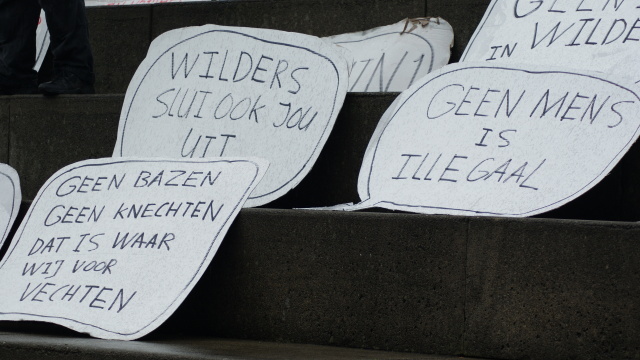 WILDERS
SLUI OOK JOU
UIT
GEEN
IN WILDE
GEEN MENS
IS
ILLEGAAL
GEEN BAZEN
GEEN KNECHTEN
DAT IS WAAR
WIJ VOOR
VECHTEN